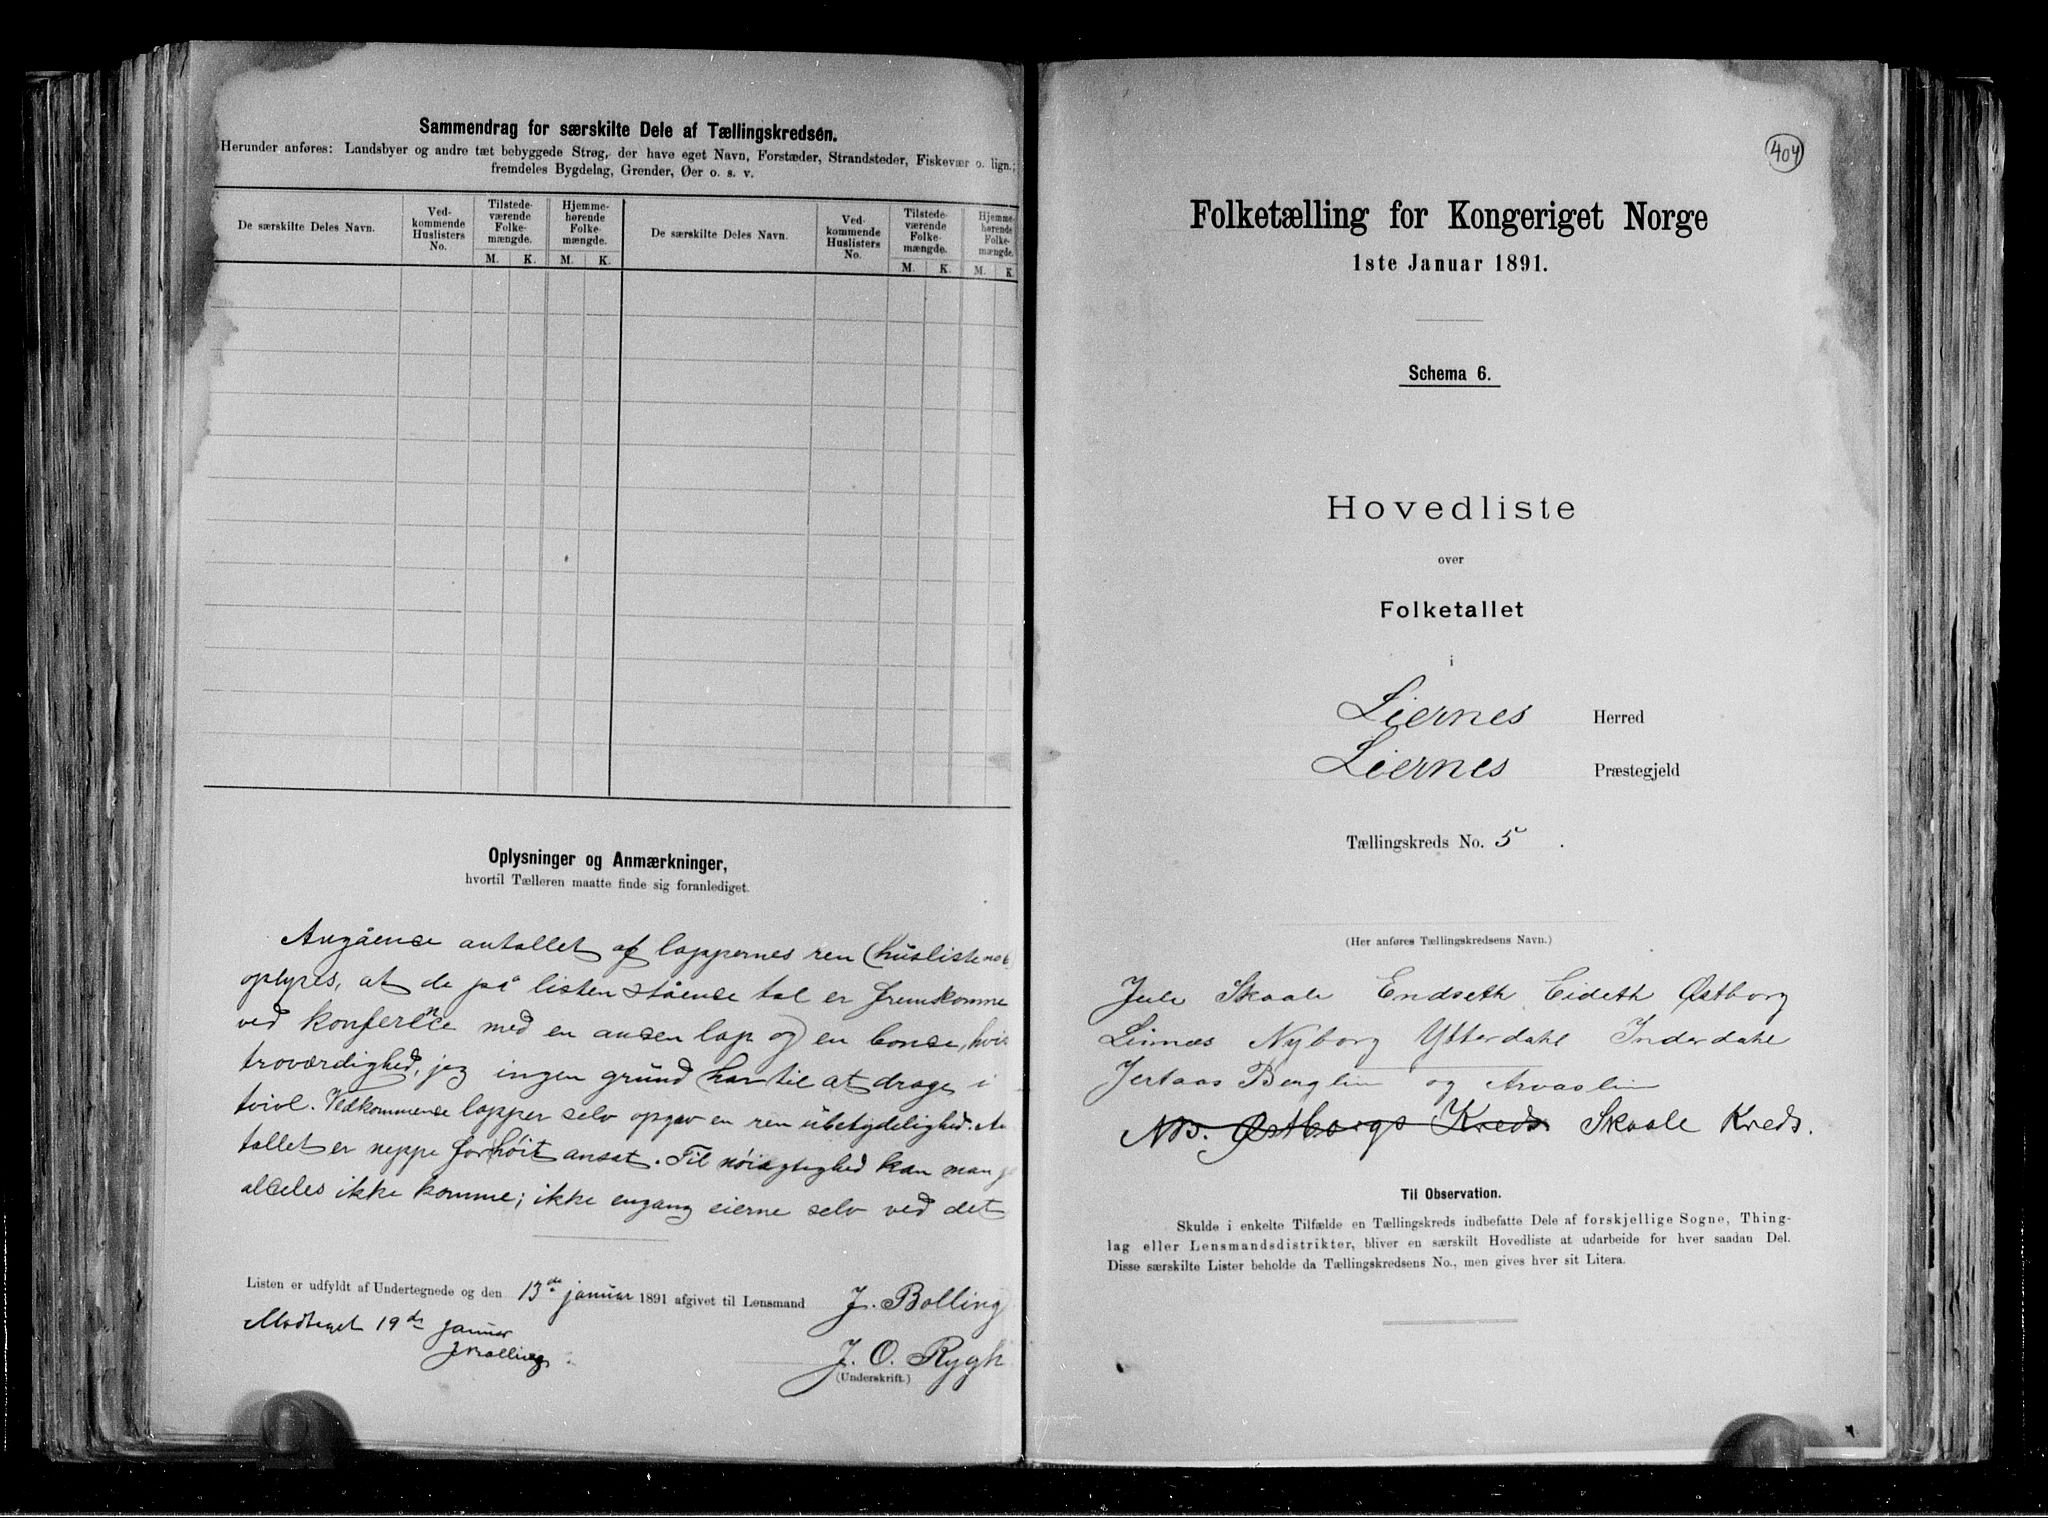 Sammendrag for særskilte Dele af Tællingskredsen.
Herunder anføres: Landsbyer og andre tæt bebyggede Strøg, der have eget Navn, Forstæder, Strandsteder, Fiskevær o. lign.;
fremdeles Bygdelag, Grender, Øer o. s. v.
De særskilte Deles Navn.
Ved-
kommende
Huslisters
No.
Tilstede-
værende
Folke-
mængde.
M. K.
Hjemme-
hørende
Folke-
mængde.
M. K.
De særskilte Deles Navn.
Ved-
kommende
Huslisters
No.
Tilstede-
værende
Folke-
mængde.
M. K.
Hjemme-
hørende
Folke-
mængde.
M. K.
Oplysninger og Anmærkninger,
hvortil Tælleren maatte finde sig foranlediget.
Angående antallet af lappernes ren (husliste no 6)
oplyses, at de på listen stående tal er fremkomme
ved konference med en anden lap og en bonde, hvis
troværdighed, jeg ingen grund har til at drage i
tvivl. Vedkommende lapper selv opgav en ren ubetydelighed. An
tallet er neppe for høit ansat. Til nøiagtighed kan man
aldeles ikke komme; ikke engang eierne selv ved det
Listen er udfyldt af Undertegnede og den 13de januar 1891 afgivet til Lensmand J. Bolling
Modtaget 19de januar
JBolling
J. O. Rygh
(Underskrift.)
404
Folketælling for Kongeriget Norge
1ste Januar 1891.
Schema 6.
Hovedliste
over
Folketallet
i
Liernes Herred
Liernes Præstegjeld
Tællingskreds No. 5.
(Her anføres Tællingskredsens Navn.)
Jule Skaale Endseth Eideth Østborg
Linnæs Nyborg Ytterdahl Inderdahl
Jertaas Berglim og Arvaslim
NB. Østborgs Kreds Skaale Kreds.
Til Observation.
Skulde i enkelte Tilfælde en Tællingskreds indbefatte Dele af forskjellige Sogne, Thing-
lag eller Lensmandsdistrikter, bliver en særskilt Hovedliste at udarbeide for hver saadan Del.
Disse særskilte Lister beholde da Tællingskredsens No., men gives hver sit Litera.